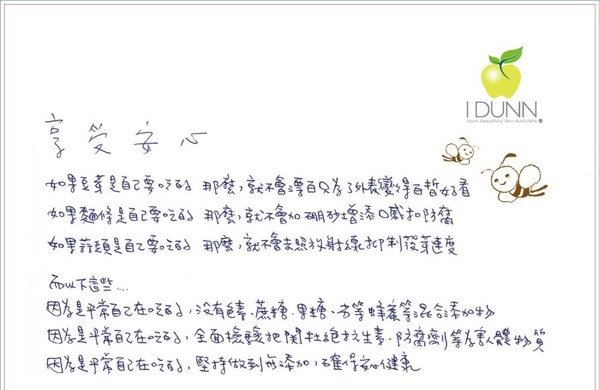 I DUNN
享受安心
如果豆芽是自己要吃的 那麼,就不會漂白只為了外表變得白皙好看
如果麵條是自己要吃的 那麼,就不會加硼砂增添口感和防腐
如果蒜頭是自己要吃的 那麼,就不會去照放射線抑制發芽速度
而以下這些...
因為是平常自己在吃的,沒有色素、蔗糖、果糖、劣等蜂蜜等混合添加物
因為是平常自己在吃的,全面檢驗把關杜絕抗生素、防腐劑等有害人體物質
因為是平常自己在吃的,堅持做到無添加,確保安心健康